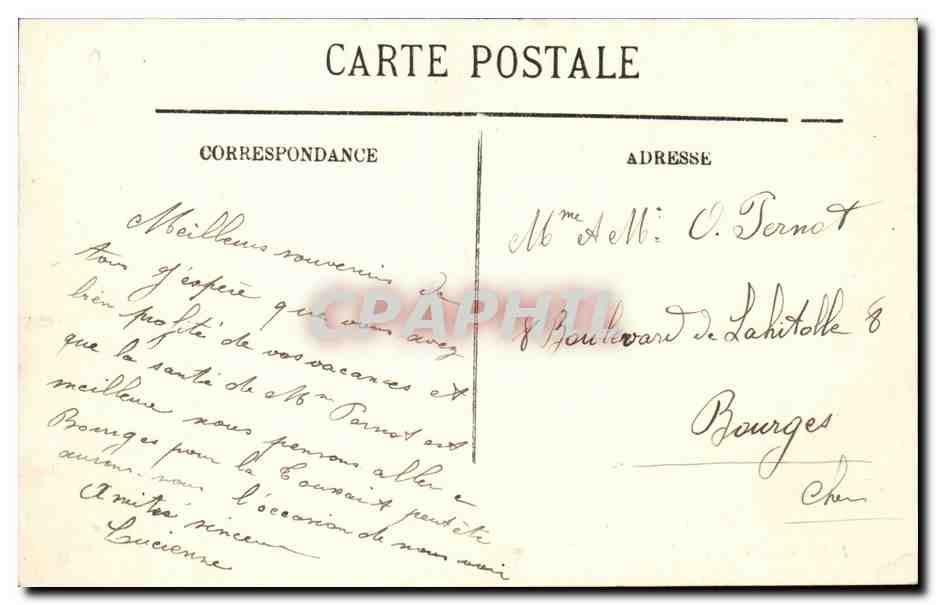 CARTE POSTALE
CORRESPONDANCE
Meilleurs souvenirs de
tous J'espère que vous avez
bien profité de vos vacances et
que la santé de Mme Pernot est
meilleure nous pensons aller a
Bourges pour la Toussait peut être
aurons-nous l'occasion de nous voir
Amitiés sincères
Lucienne
ADRESSE
Mme & Mr: O. Pernot
8 Boulevard de Lahitolle 8
Bourges
Cher
CPAPHIL